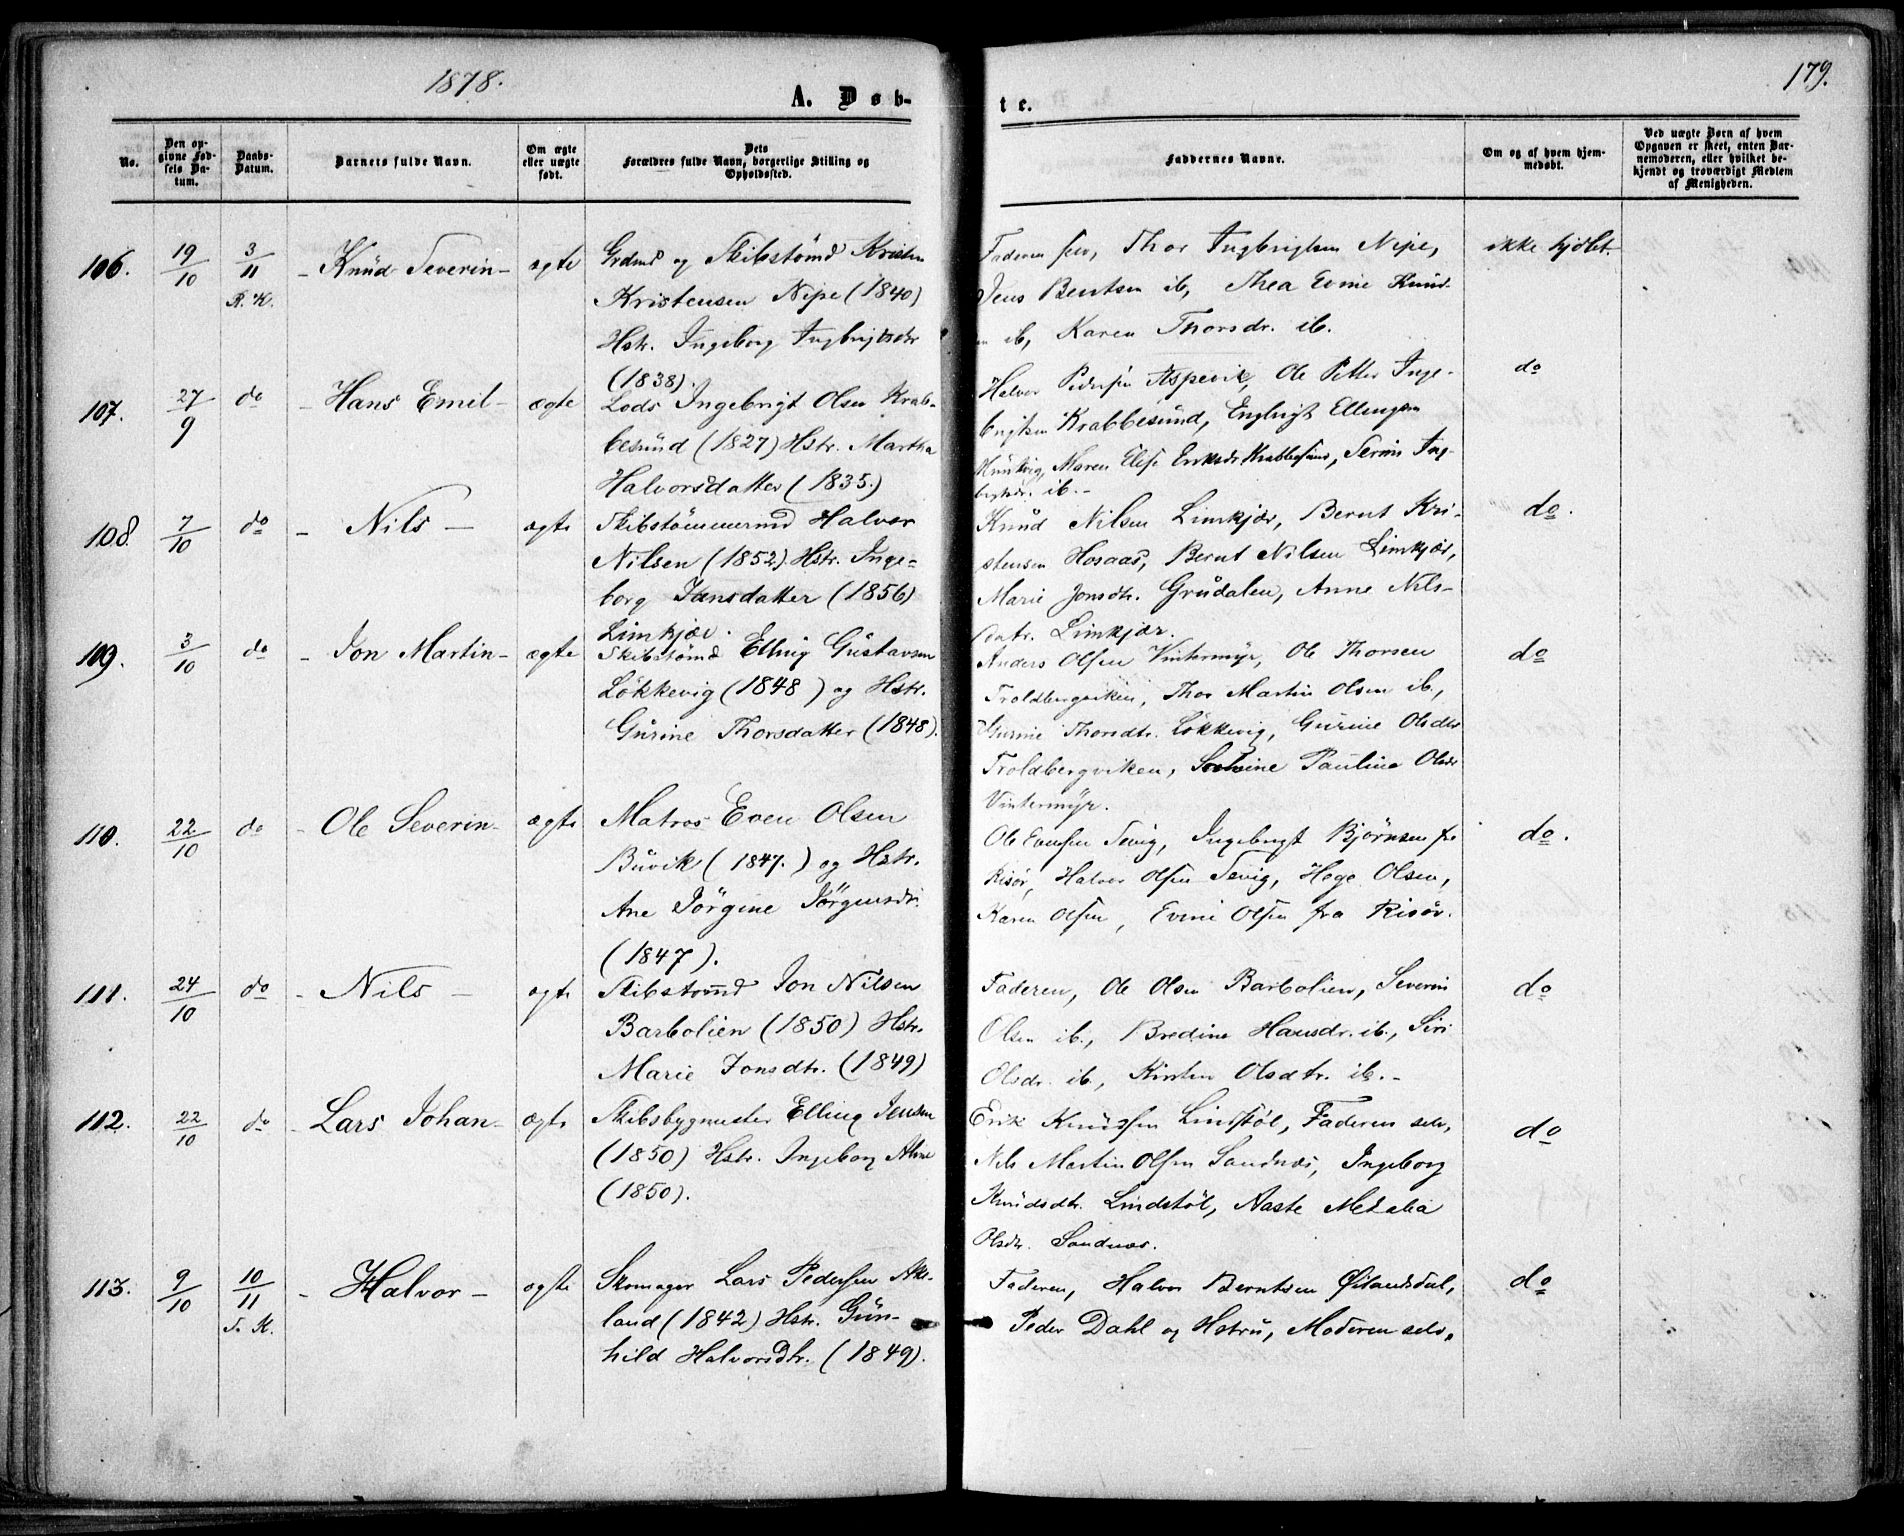 1878.
179.
A. Døb-
te.
No.
Den op-
givne Fød-
sels Da-
tum.
Daabs-
Datum.
Barnets fulde Navn.
Om ægte
eller uægte
født.
Dets
Forældres fulde Navn, borgerlige Stilling og
Opholdssted.
Faddernes Navne.
Om og af hvem hjem-
medøbt.
Ved uægte Børn af hvem
Opgaven er skeet, enten Bar-
nemoderen, eller hvilket be-
kjendt og troværdigt Medlem
af Menigheden.
106. 19/10 3/11 R. K. - Knud Severin - ægte
Grdmd og Skibstømd Kristen
Kristensen Nipe (1840)
Hstr. Ingeborg Ingbrigtsdtr
(1838).
Faderen selv, Thor Ingbrigtsen Nipe,
Jens Bentsen ib, Thea Evine Knud-
ib, Karen Thorsdr. ib.
ikke hjdbt.
107. 27/9 do - Hans Emil - ægte
Lods Ingebrigt Olsen Krab-
besund (1827) Hstr. Martha
Halvorsdatter (1835.)
Halvor Pedersen Aspevik, Ole Petter Inge-
brigtsen Krabbesund, Engbrigt Ellingsen
Maren Elise Eriksdr Krabbesund, Serine Ing-
brgtsdr. ib. -
do
108. 7/10 do - Nils - ægte
Skibstømmermd Halvor
Nilsen (1852) Hstr. Inge-
borg Jansdatter (1856)
Limkjær.
Knud Nilsen Limkjær, Bernt Kri-
stensen Hosaas, Bernt Nilsen Limkjær,
Marie Jonsdtr. Grudalen, Anne Nils-
datr. Limkjær.
do.
109. 3/10 do - Jon Martin - ægte
Skibstømd Elling Gustavsen
Løkkevig (1848) og Hstr.
Gurine Thorsdatter (1848).
Anders Olsen Vintermyr, Ole Thorsen
Troldbergviken, Thor Martin Olsen ib.,
Gurine Thorsdtr. Løkkevig, Gurine Olsdtr
Troldbergviken, Severine Pauline Olsdr
Vintermyr.
do
110. 22/10 do - Ole Severin - ægte
Matros Even Olsen
Buvik (1847.) og Hstr.
Ane Jörgine Jörgensdr.
(1847).
Ole Evensen Sevig, Ingebrigt Bjørnsen fra
Risør, Halvor Olsen Sevig, Hege Olsen,
Karen Olsen, Evine Olsen fra Risör.
do.
111. 24/10 do - Nils - ægte
Skibstømd Jon Nilsen
Barbolien (1850) Hstr.
Marie Jonsdtr. (1849)
Faderen, Ole Olsen Barbolien, Severin
Olsen ib., Bredine Hansdr. ib., Siri
Olsdr. ib., Kirsten Olsdtr. ib. -
do
112. 22/10 do - Lars Johan - ægte
Skibsbygmester Elling Jensen
(1850) Hstr. Ingeborg Aline
(1850).
Erik Knudsen Lindstøl, Faderen selv,
Nils Martin Olsen Sandnæs, Ingeborg
Knudsdtr. Lindstøl, Aaste Metalia
Olsdtr. Sandnæs.
do
113. 9/10 10/11 S. K. - Halvor - ægte
Skomager Lars Pedersen Ake-
land (1842) Hstr. Gun-
hild Halvorsdtr. (1849).
Faderen, Halvor Berntsen Øilandsdal,
Peder Dahl og Hstru, Moderen selv.
do